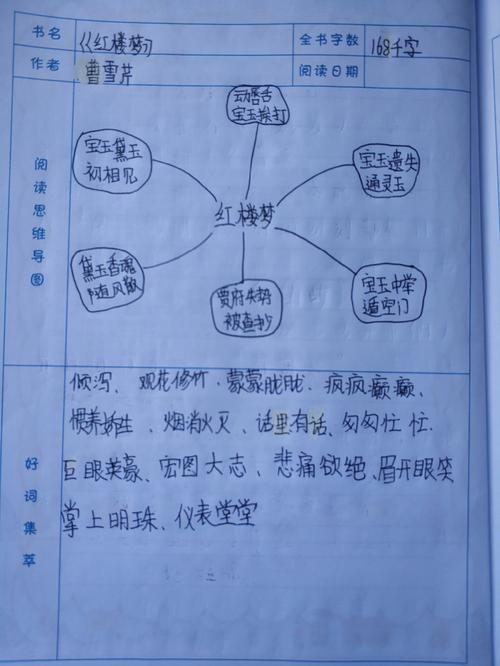 书名 《红楼梦》 全书字数 168千字
作者 曹雪芹 阅读日期
阅读思维导图
动唇舌
宝玉挨打
宝玉黛玉
初相见
宝玉遗失
通灵玉
红楼梦
黛玉香魂
随风散
贾府失势
被查抄
宝玉中举
遁空门
好词集萃
倾泻、观花修竹、蒙蒙胧胧、疯疯癫癫、
惯养娇生、烟消火灭、话里有话、匆匆忙忙、
巨眼英豪、宏图大志、悲痛欲绝、眉开眼笑
掌上明珠、仪表堂堂